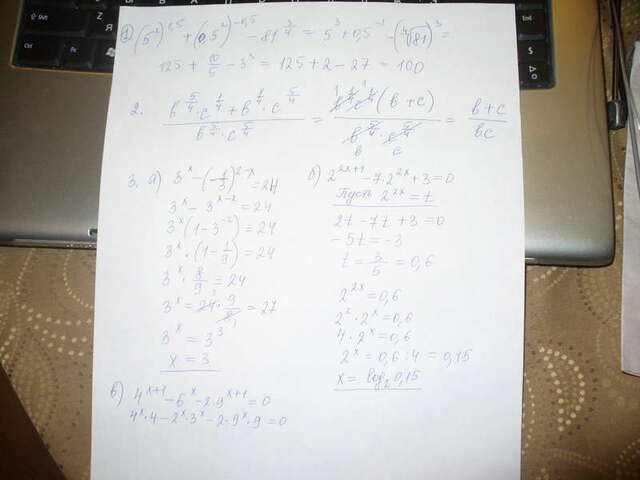 1) (5⁻²)¹,⁵ + (0,5²)⁻⁰,⁵ - 81^(3/4) = 5³ + 0,5⁻¹ - (⁴√81)³ =
125 + 10/5 - 3³ = 125 + 2 - 27 = 100
2. (b^(5/4)·c^(1/4) + b^(1/4)·c^(5/4)) / (b^(5/4)·c^(5/4)) = (b^(1/4)c^(1/4)(b+c)) / (b^(5/4)·c^(5/4)) = (b+c)/(bc)
3. а) 3^x - (1/3)^(2-x) = 24
3^x - 3^(x-2) = 24
3^x(1 - 3⁻²) = 24
3^x·(1 - 1/9) = 24
3^x · 8/9 = 24
3^x = 24 · 9/8 = 27
3^x = 3³
x = 3
б) 2^(2x+1) - 7·2^(2x) + 3 = 0
Пусть 2^(2x) = t
2t - 7t + 3 = 0
-5t = -3
t = 3/5 = 0,6
2^(2x) = 0,6
2²·2^x = 0,6
4·2^x = 0,6
2^x = 0,6 : 4 = 0,15
x = log₂0,15
в) 4^(x+1) - 6^x - 2·9^(x+1) = 0
4^x·4 - 2^x·3^x - 2·9^x·9 = 0